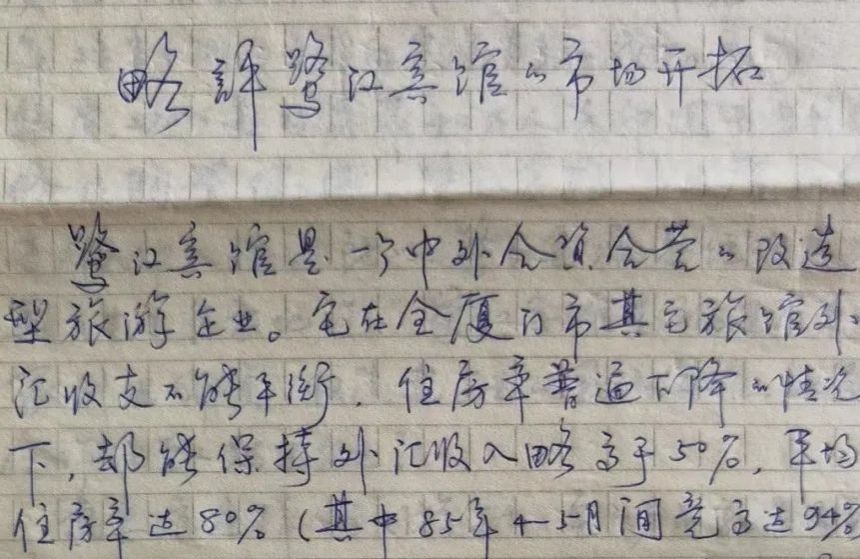 略評鹭江宾馆的市场开拓
鹭江宾馆是一个中外合资合营的改造
型旅游企业。它在全厦门市其它旅馆外
汇收支不能平衡,住房率普遍下降的情况
下,却能保持外汇收入略高于50%,平均
住房率达80%(其中85年4—5月间竟高达94%